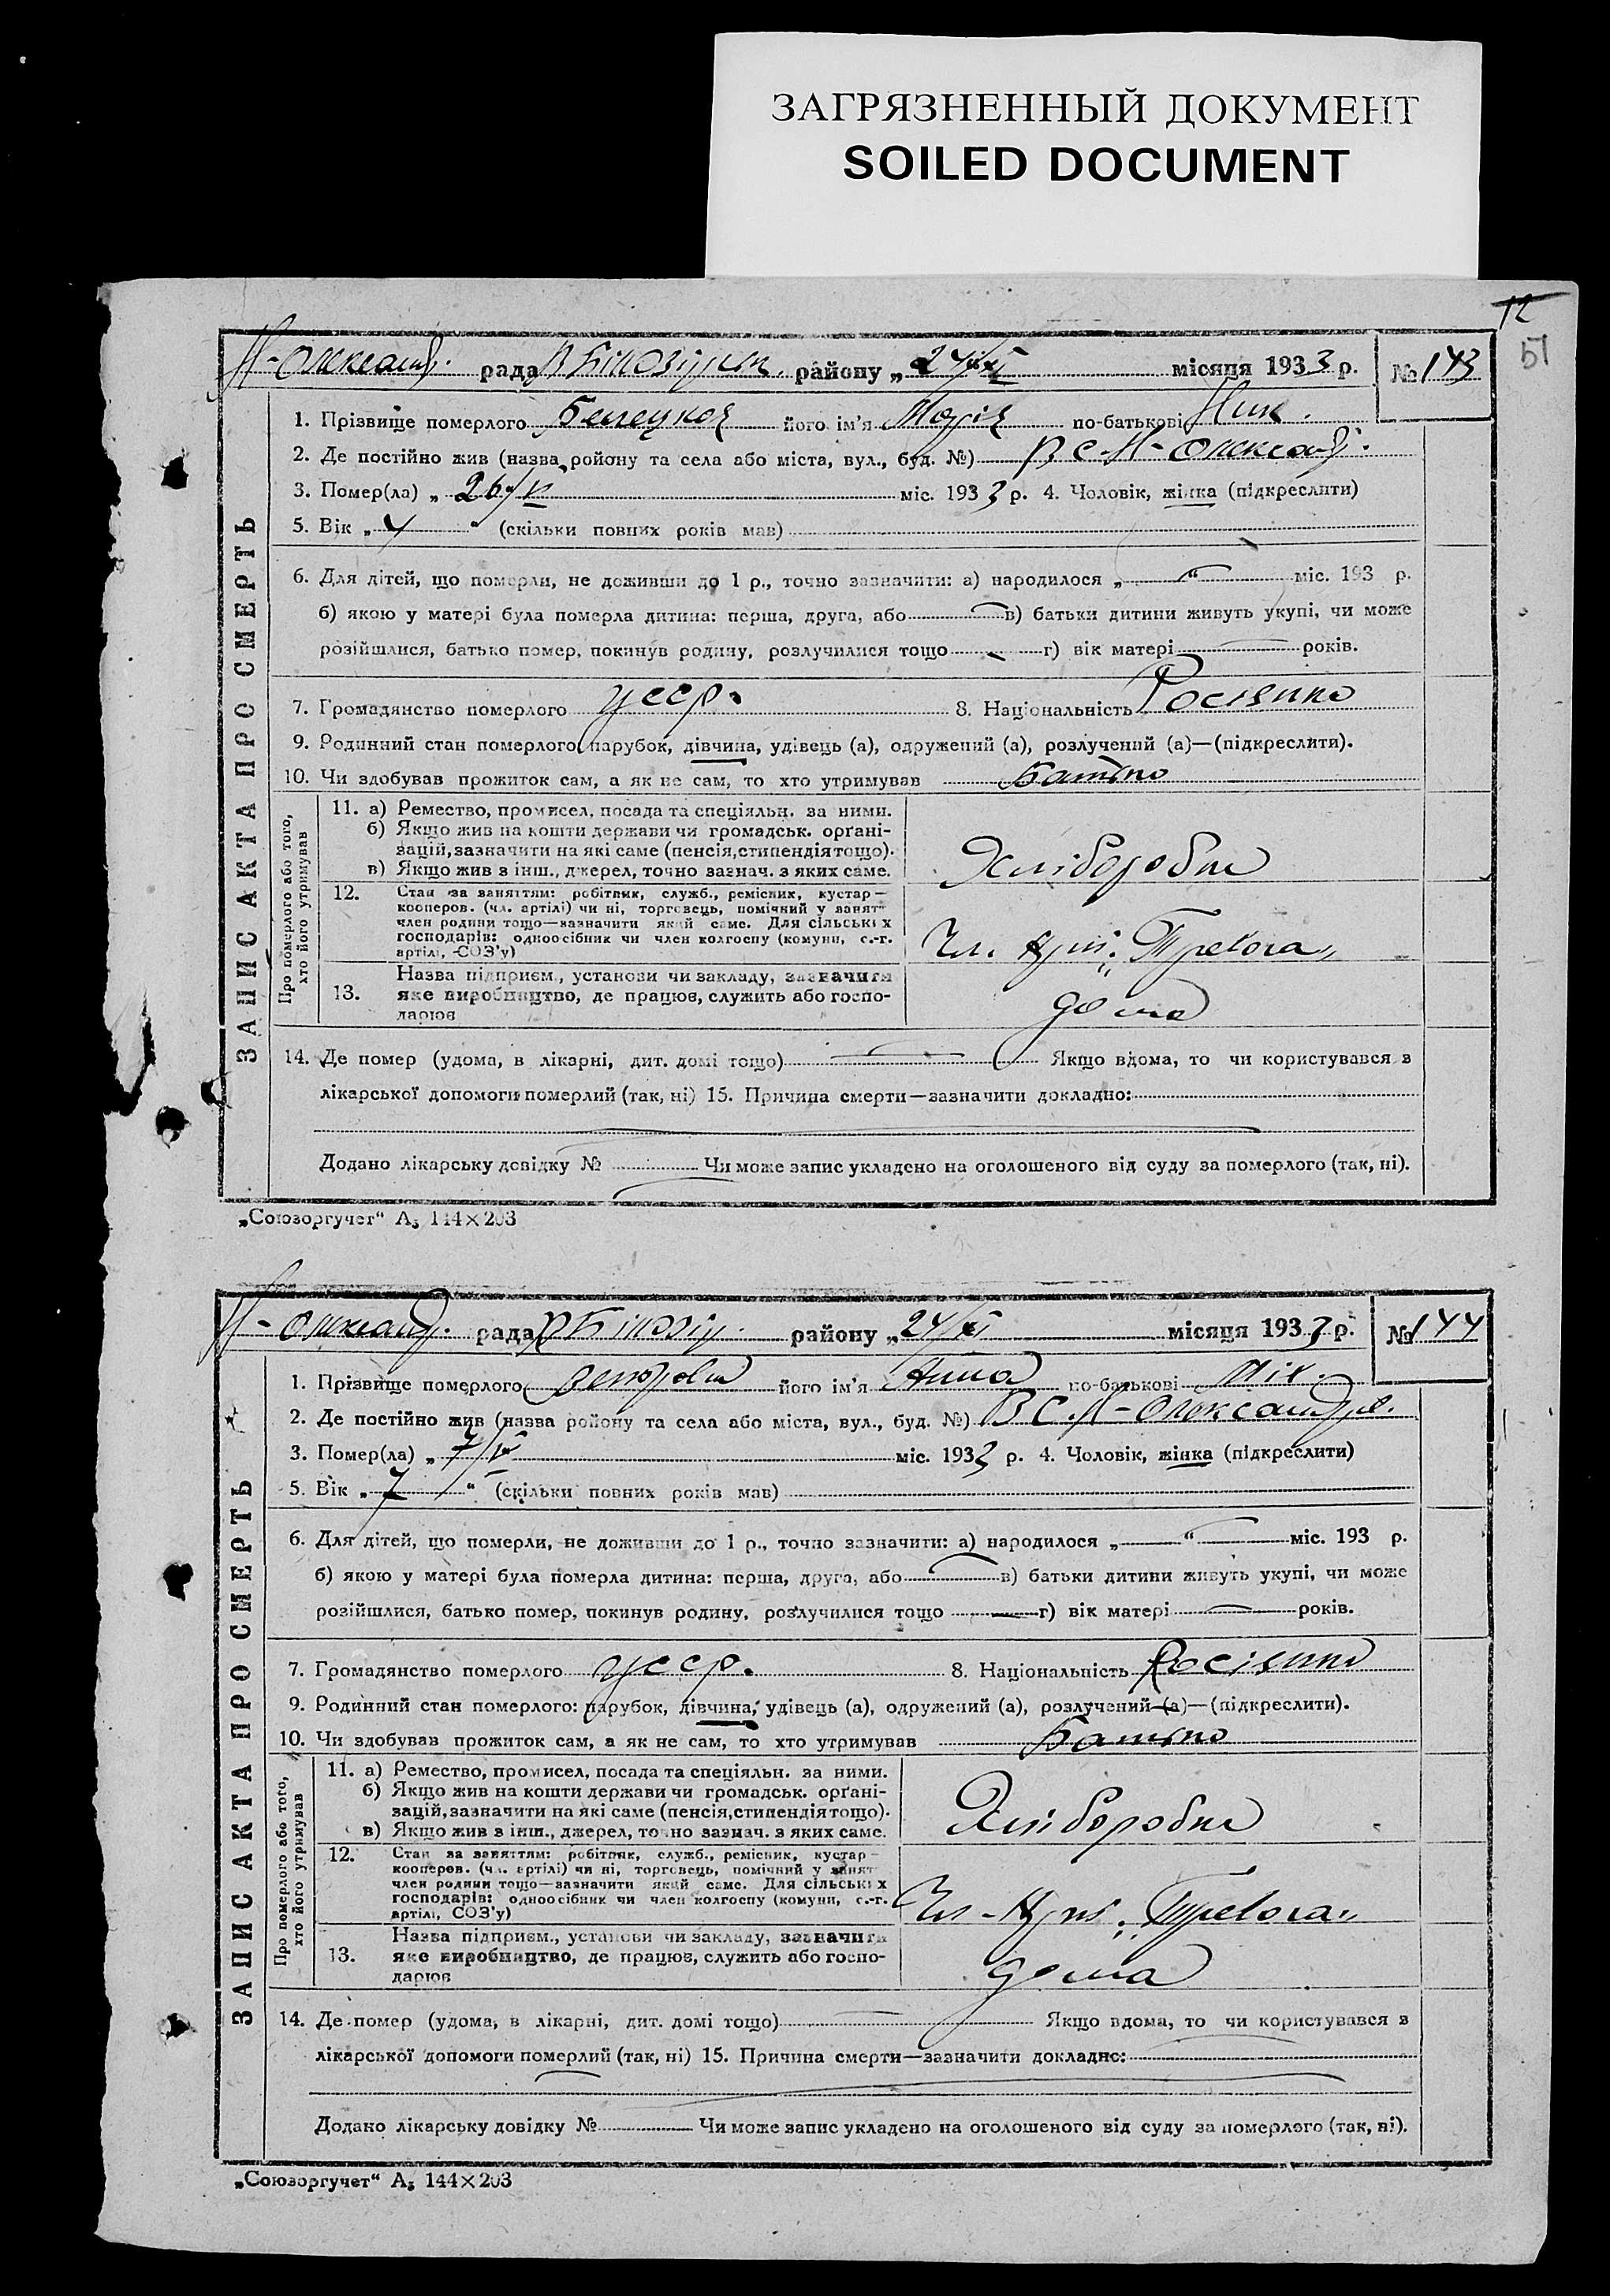 ЗАГРЯЗНЕННЫЙ ДОКУМЕНТ
SOILED DOCUMENT
12
51
Н-Олександ. рада В Білозірск. району „24/XI місяця 1933 р. № 143
ЗАПИС АКТА ПРО СМЕРТЬ
1. Прізвище померлого Белецкая його ім'я Марія по-батькові Ник.
2. Де постійно жив (назва району та села або міста, вул., буд. №) В с. Н-Олександ.
3. Помер(ла) „ 26/V міс. 1933 р. 4. Чоловік, жінка (підкреслити)
5. Вік „ 4 “ (скільки повних років мав)
6. Для дітей, що померли, не доживши до 1 р., точно зазначити: а) народилося „ “ міс. 193 р.
б) якою у матері була померла дитина: перша, друга, або в) батьки дитини живуть укупі, чи може
розійшлися, батько помер, покинув родину, розлучилися тощо г) вік матері років.
7. Громадянство померлого УССР. 8. Національність Росіянка
9. Родинний стан померлого: парубок, дівчина, удівець (а), одружений (а), розлучений (а)—(підкреслити).
10. Чи здобував прожиток сам, а як не сам, то хто утримував Батько
Про померлого або того, хто його утримував
11. а) Ремество, промисел, посада та спеціяльн. за ними.
б) Якщо жив на кошти держави чи громадськ. орґані-
зацій, зазначити на які саме (пенсія, стипендія тощо).
в) Якщо жив з інш., джерел, точно зазнач. з яких саме.
Хлібороби
12. Стан за заняттям: робітник, служб., ремісник, кустар—
кооперов. (чл. артілі) чи ні, торговець, помічний у занят
член родини тощо—зазначити який саме. Для сільських
господарів: одноосібник чи член колгоспу (комуни, с.-г.
артілі, СОЗ'у)
Чл. Арт.
13. Назва підприєм., установи чи закладу, зазначити
яке виробництво, де працюв, служить або госпо-
дарюв
14. Де помер (удома, в лікарні, дит. домі тощо) дома Якщо вдома, то чи користувався в
лікарської допомоги померлий (так, ні) 15. Причина смерти—зазначити докладно:
Додано лікарську довідку № Чи може запис укладено на оголошеного від суду за померлого (так, ні).
„Союзоргучет“ А₅ 144×203
Н-Олександ. рада В Білозір. району „24/XI місяця 1933 р. № 144
ЗАПИС АКТА ПРО СМЕРТЬ
1. Прізвище померлого його ім'я Анна по-батькові Мік.
2. Де постійно жив (назва району та села або міста, вул., буд. №) В с. Н-Олександ.
3. Помер(ла) „ 7/V міс. 1933 р. 4. Чоловік, жінка (підкреслити)
5. Вік „ 7 “ (скільки повних років мав)
6. Для дітей, що померли, не доживши до 1 р., точно зазначити: а) народилося „ “ міс. 193 р.
б) якою у матері була померла дитина: перша, друга, або в) батьки дитини живуть укупі, чи може
розійшлися, батько помер, покинув родину, розлучилися тощо г) вік матері років.
7. Громадянство померлого УССР. 8. Національність Росіянка
9. Родинний стан померлого: парубок, дівчина, удівець (а), одружений (а), розлучений (а)—(підкреслити).
10. Чи здобував прожиток сам, а як не сам, то хто утримував Батько
Про померлого або того, хто його утримував
11. а) Ремество, промисел, посада та спеціяльн. за ними.
б) Якщо жив на кошти держави чи громадськ. орґані-
зацій, зазначити на які саме (пенсія, стипендія тощо).
в) Якщо жив з інш., джерел, точно зазнач. з яких саме.
Хлібороби
12. Стан за заняттям: робітник, служб., ремісник, кустар—
кооперов. (чл. артілі) чи ні, торговець, помічний у занят
член родини тощо—зазначити який саме. Для сільських
господарів: одноосібник чи член колгоспу (комуни, с.-г.
артілі, СОЗ'у)
Чл-Арт.
13. Назва підприєм., установи чи закладу, зазначити
яке виробництво, де працюв, служить або госпо-
дарюв
14. Де помер (удома, в лікарні, дит. домі тощо) дома Якщо вдома, то чи користувався в
лікарської допомоги померлий (так, ні) 15. Причина смерти—зазначити докладно:
Додано лікарську довідку № Чи може запис укладено на оголошеного від суду за померлого (так, ні).
„Союзоргучет“ А₅ 144×203